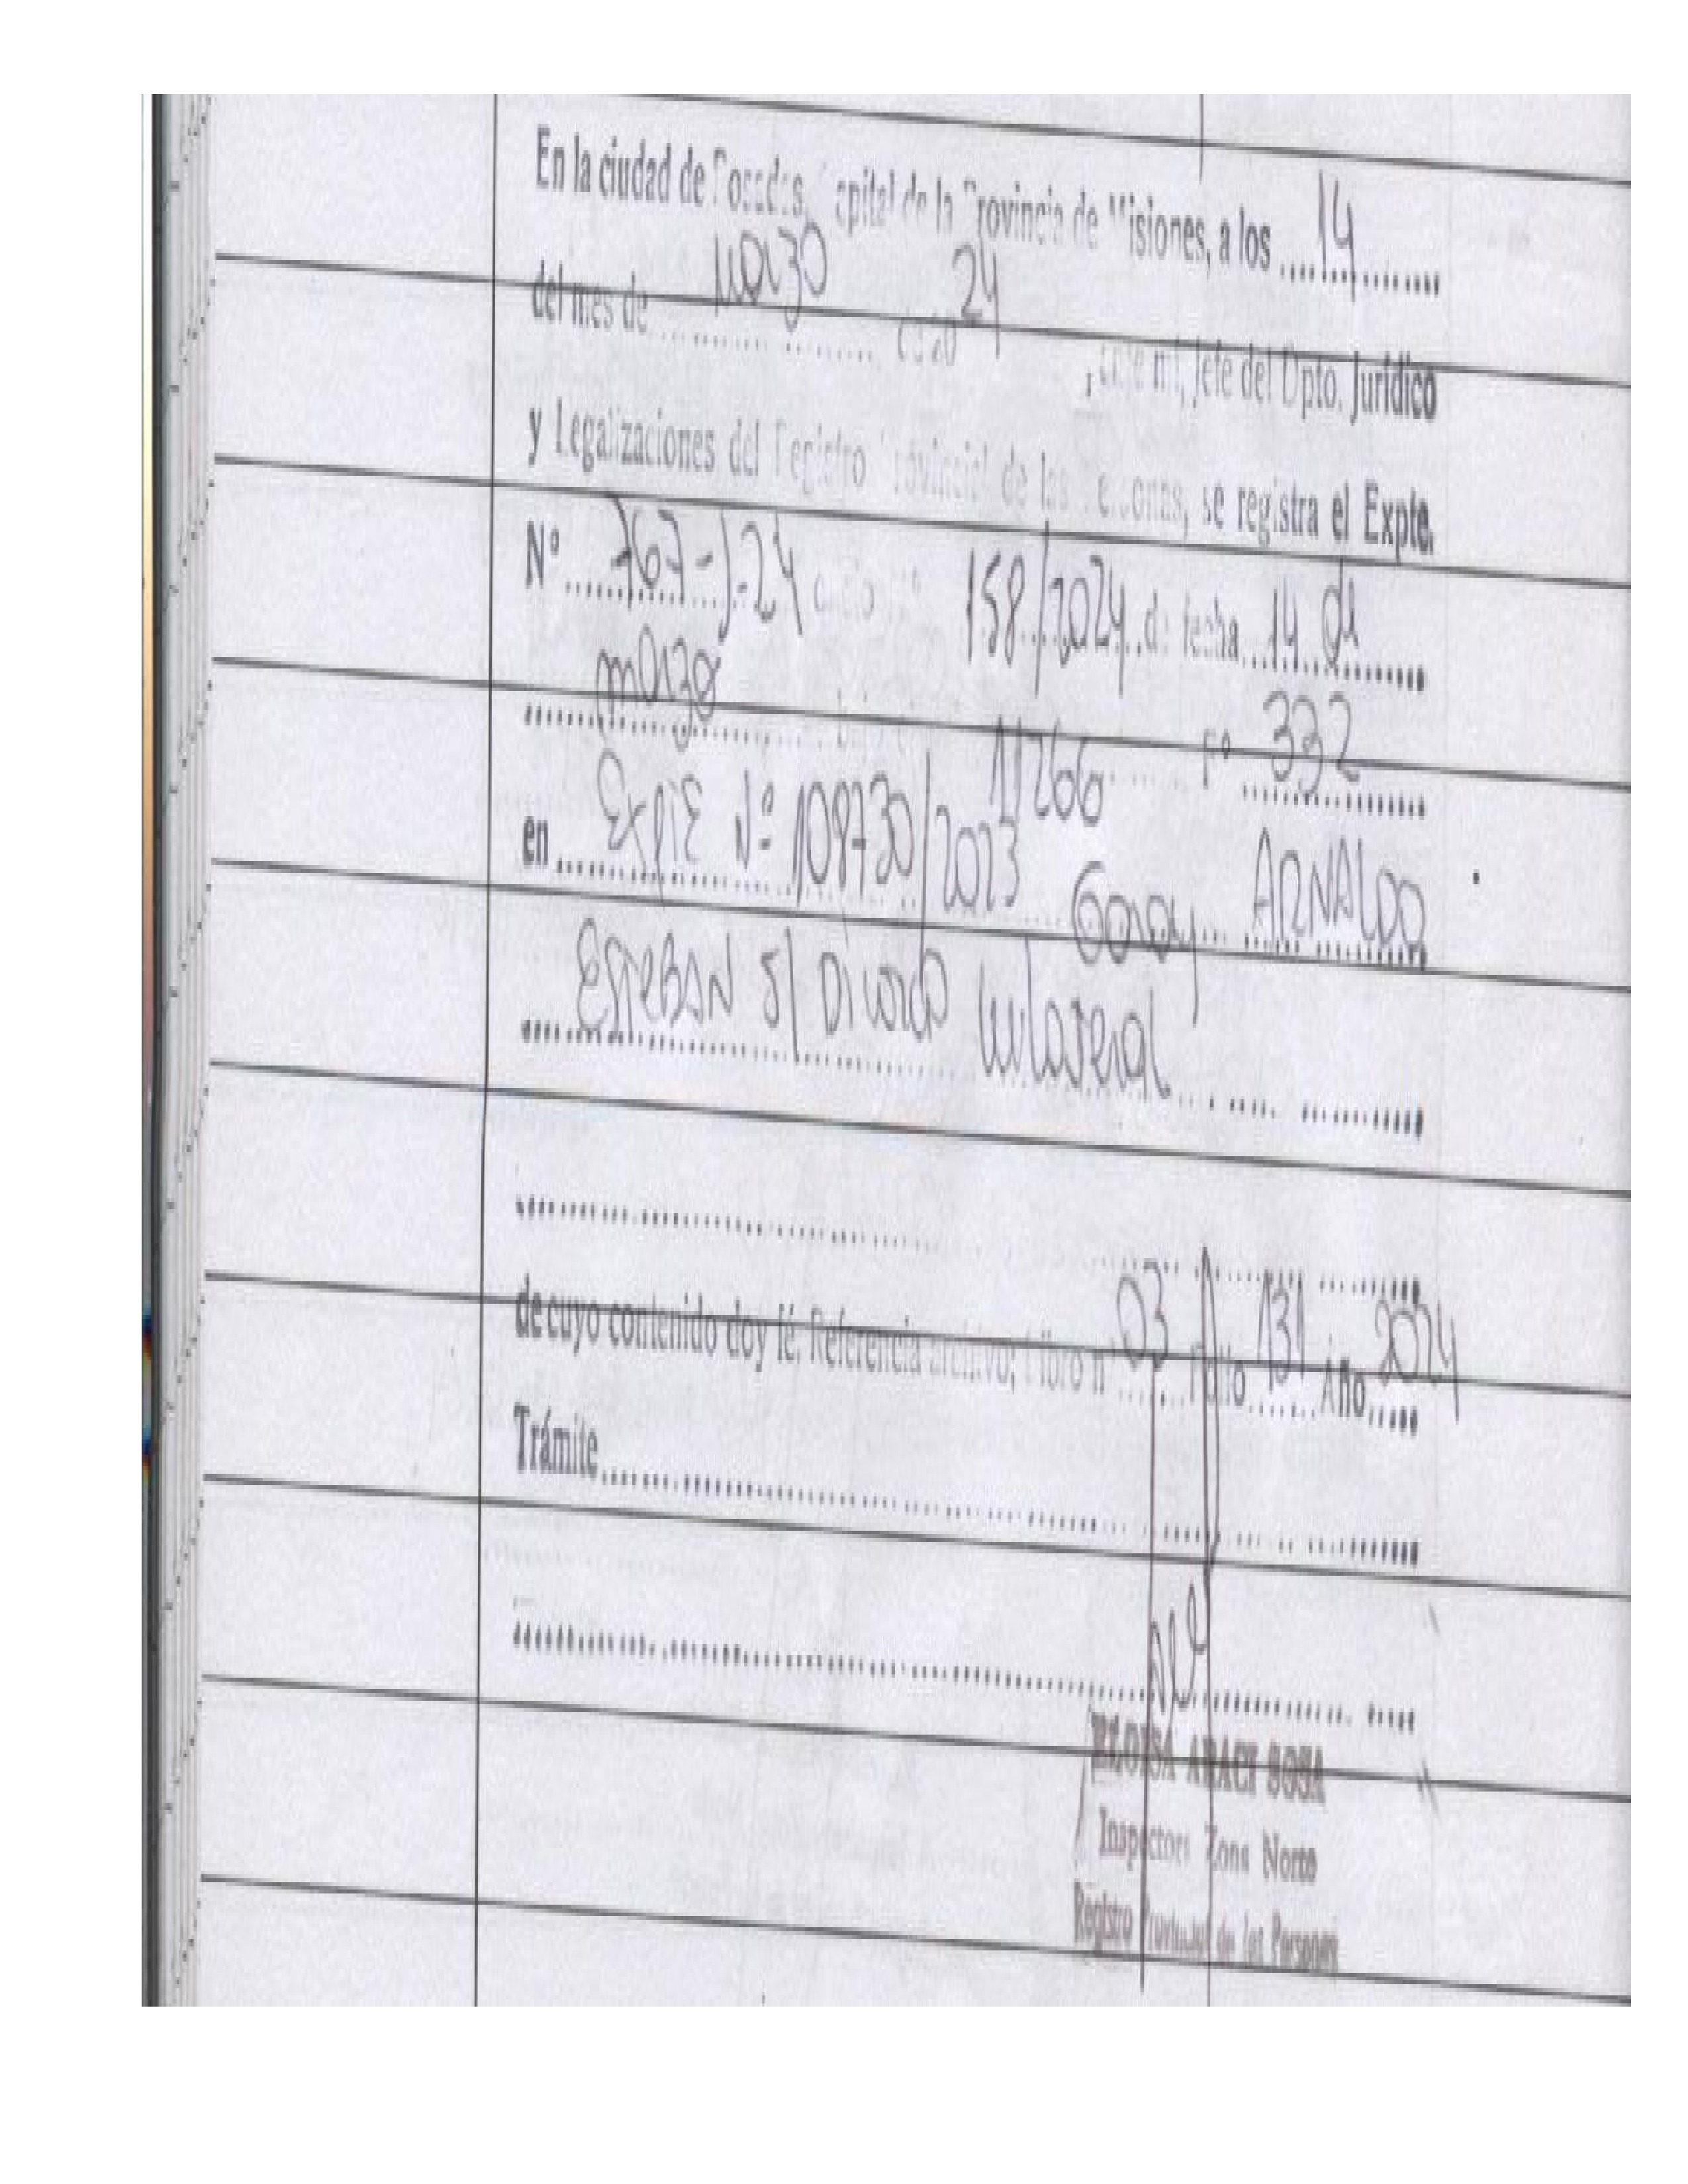 En la ciudad de Posadas, Capital de la Provincia de Misiones, a los 14
del mes de Marzo de 20 24 , ante mí, Jefe del Dpto. Jurídico
y Legalizaciones del Registro Provincial de las Personas, se registra el Expte.
Nº 767-J-24 158/2024 de fecha 14 de
marzo 11266 Fº 332
en Expte Nº 108730/2023 Godoy ARNALDO
ESTEBAN S/ Divorcio Unilateral
de cuyo contenido doy fé. Referencia archivo; Libro nº 03 Folio 131 Año 2024
Trámite
ELOISA ARACI SOSA
Inspectora Zona Norte
Registro Provincial de las Personas